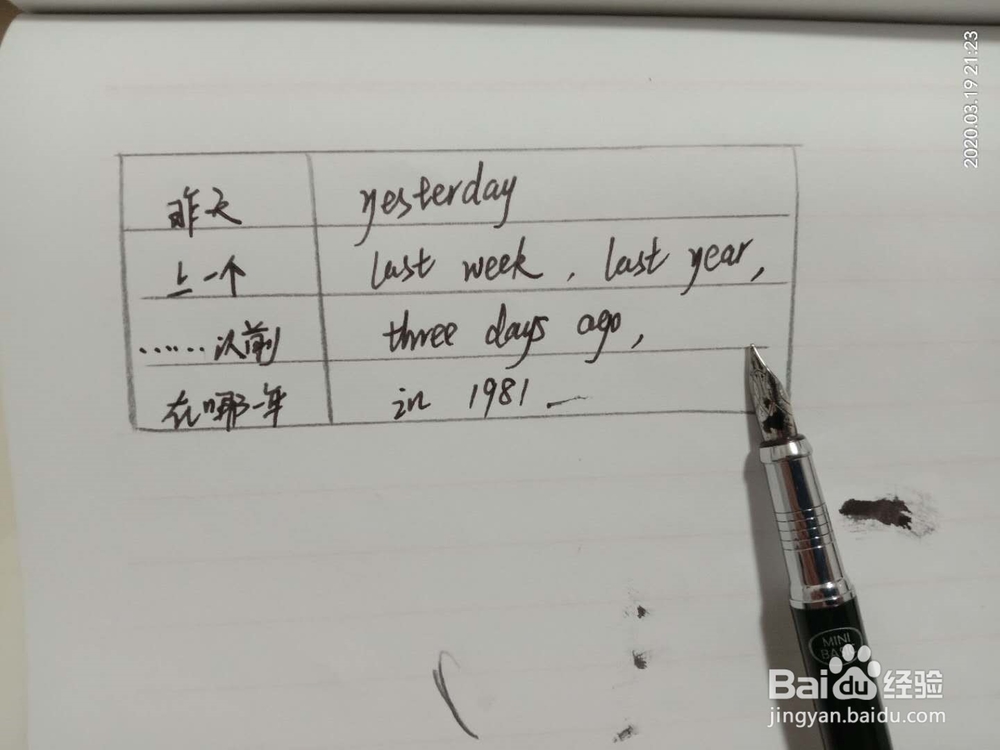 2020.03.19 21:23
昨天 yesterday
上一个 last week, last year,
......以前 three days ago,
在哪一年 in 1981
MINI
Bai du 经验
jingyan.baidu.com